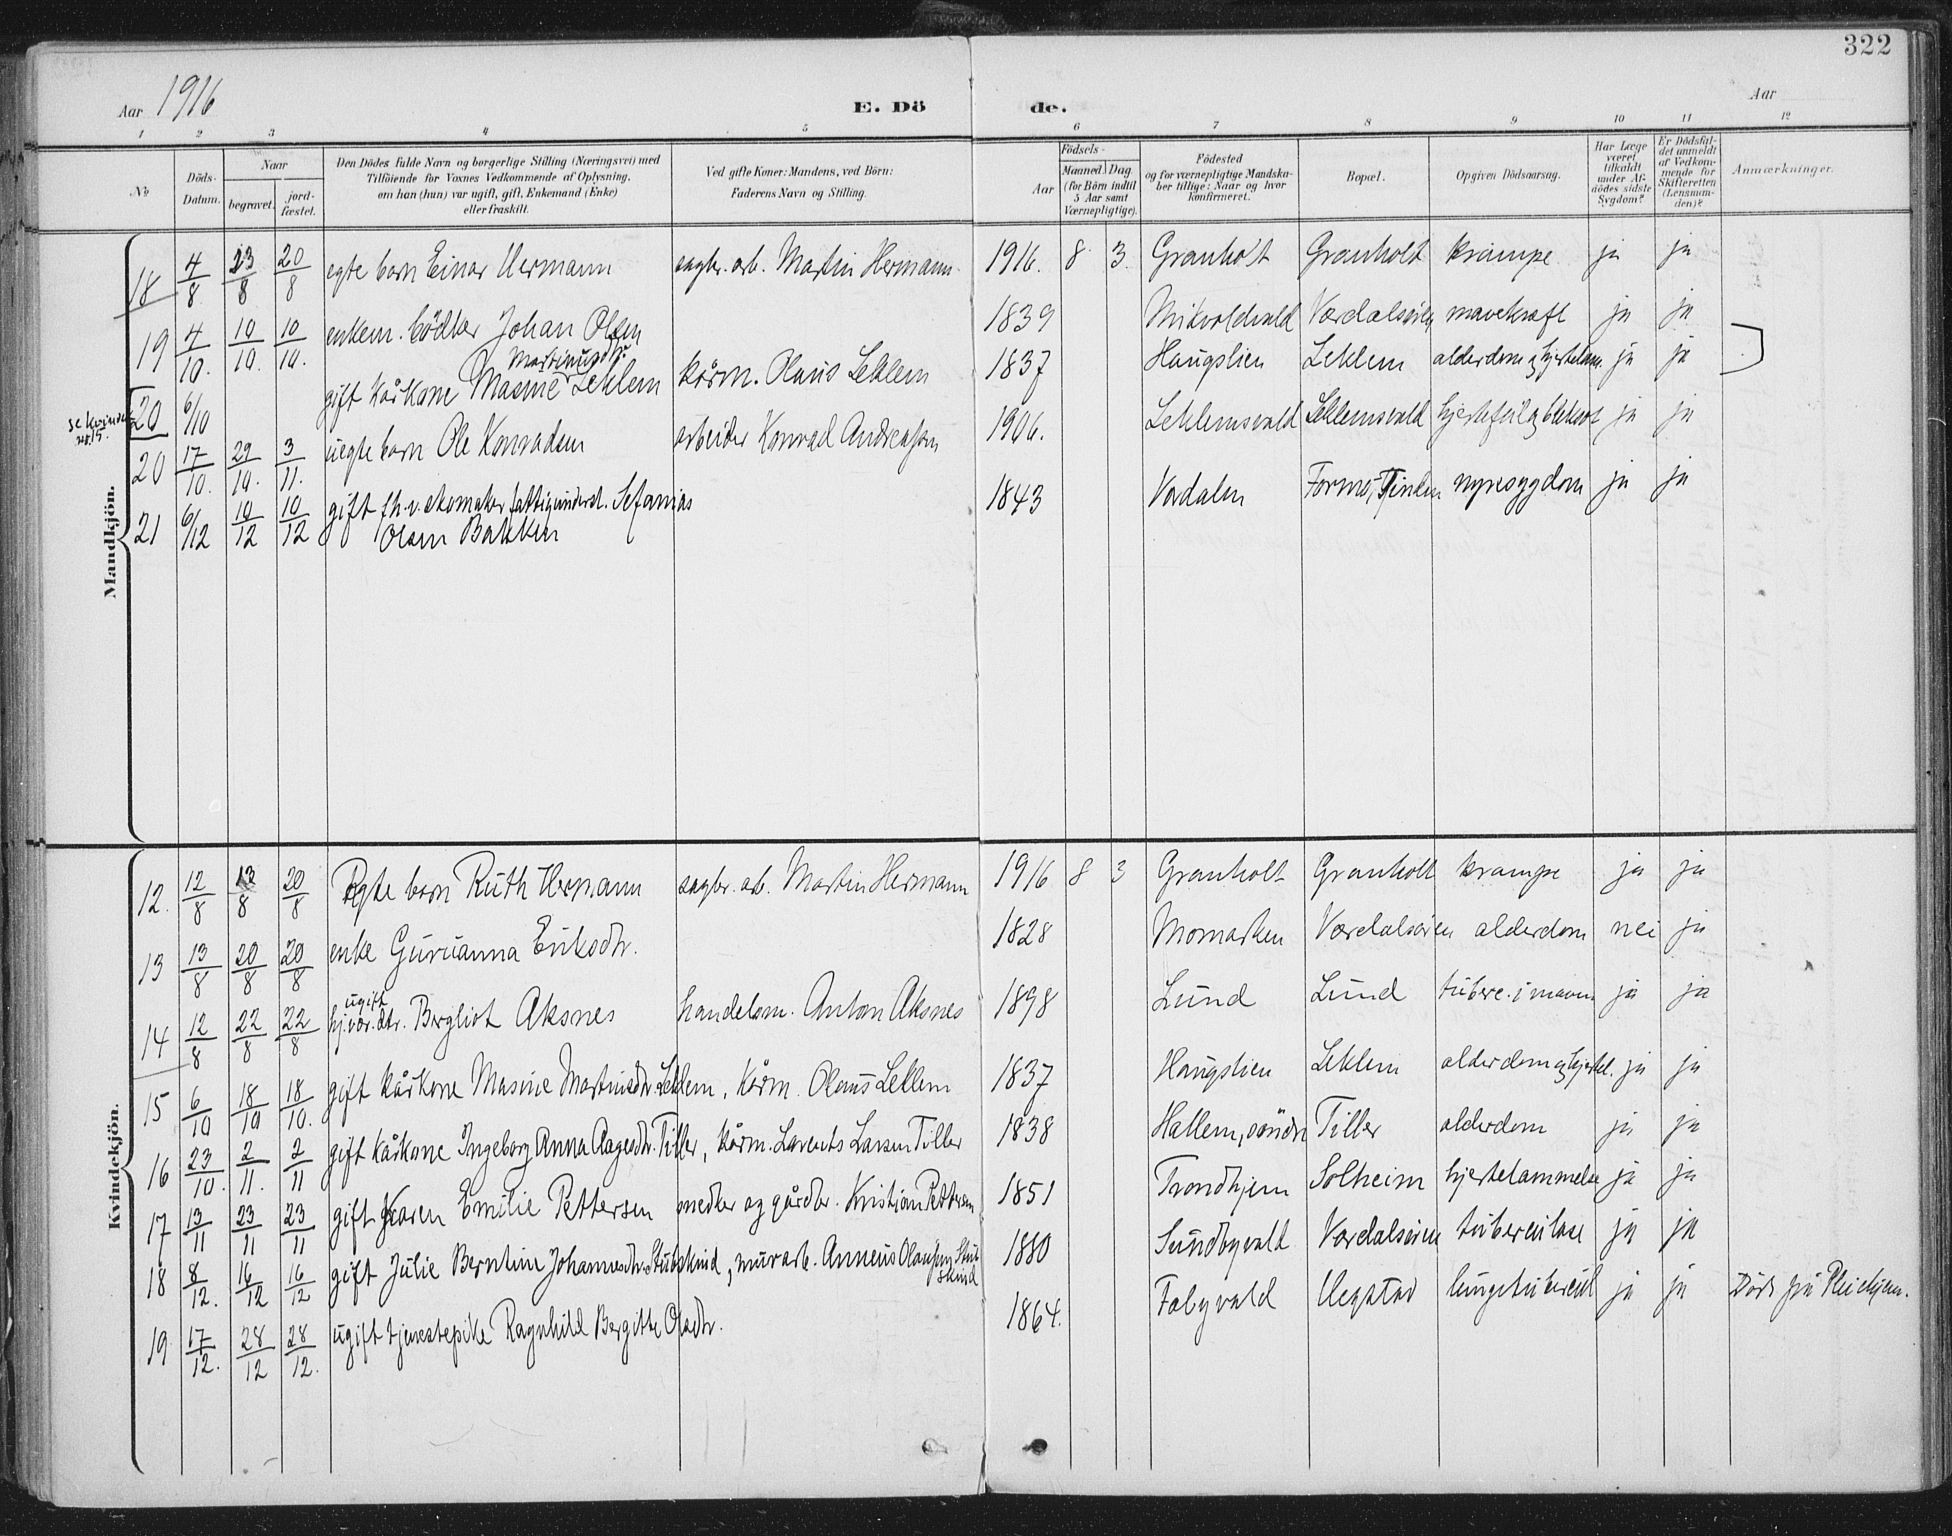 322
Aar 1916
E. Dö de.
Aar
1 2 3 4 5 6 7 8 9 10 11 12
No
Döds-Datum.
Naar
begravet.
jord-fæstet.
Den Dödes fulde Navn og borgerlige Stilling (Næringsvei) med
Tilföiende for Voxnes Vedkommende af Oplysning,
om han (hun) var ugift, gift, Enkemand (Enke)
eller fraskilt.
Ved gifte Koner: Mandens, ved Börn:
Faderens Navn og Stilling.
Födsels-
Aar
Maaned. Dag
(for Börn indtil
5 Aar samt
Værnepligtige).
Födested
og for værnepligtige Mandska-
ber tillige: Naar og hvor
konfirmeret.
Bopæl.
Opgiven Dödsaarsag.
Har Læge
været
tilkaldt
under Af-
dödes sidste
Sygdom?
Er Dödsfal-
det anmeldt
af Vedkom-
mende for
Skifteretten
(Lensman-
den)?
Anmærkninger.
Mandkjön.
18 4/8 23/8 20/8 egte barn Einar Hermann sagbr. arb. Martin Hermann 1916. 8 3. Granholt Granholt krampe ja ja
19 4/10. 10/10. 10/10. enkem. bödker Johan Olsen 1839 Mikvoldvald Værdalsöien mavekræft ja ja
Martinusdtr.
20 6/10 gift kårkone Masine Leklem kårm. Olaus Leklem 1837 Haugslien Leklem alderdom og hjertelam. ja ja
se kvindek. nr. 15.
20 17/10. 29/10. 3/11. uegte barn Ole Konradsen arbeider Konrad Andreassen 1906. Leklemsvald Leklemsvald hjertefeil og bleksot ja ja
21 6/12 10/12 10/12 gift fh.v. skomaker fattigunderst. Sefanias
Olsen Bakken 1843 Verdalen Formo, Tinden nyresygdom ja ja
Kvindekjön.
12. 12/8 13/8 20/8 Egte barn Ruth Hermann sagbr. arb. Martin Hermann 1916 8 3 Granholt Granholt krampe ja ja
13 13/8 20/8 20/8 enke Guruanna Eriksdtr. 1828 Momarken Værdalsöien alderdom nei ja
ugift
14 12/8 22/8 22/8 hjvær. dtr. Bergliot Aksnes handelsm. Anton Aksnes 1898 Lund Lund tuberc. i maven ja ja
15 6/10 18/10 18/10. gift kårkone Masine Martinusdtr. Leklem, kårm. Olaus Leklem 1837 Haugslien Leklem alderdom og hjertel. ja ja
16 23/10. 2/11. 2/11 gift kårkone Ingeborg Anna Aagesdtr. Tiller, kårm. Lorents Larsen Tiller 1838 Hallem, söndre Tiller alderdom ja ja
17 13/11 23/11 23/11 gift Karen Emilie Pettersen snedker og gårdbr. Kristian Pettersen 1851 Trondhjem Solheim hjertelammelse ja ja
18 8/12. 16/12 16/12 gift Julie Berntine Johannesdtr. Stubskind, murarb. Anneus Olausen Stubskind 1880 Sundbyvald Værdalsöien tuberculose ja ja
19 17/12. 28/12 28/12. ugift tjenestepike Ragnhild Bergitte Olsdtr. 1864. Fabyvald Uegstad lungetubercul ja ja Död på Pleiehjem.